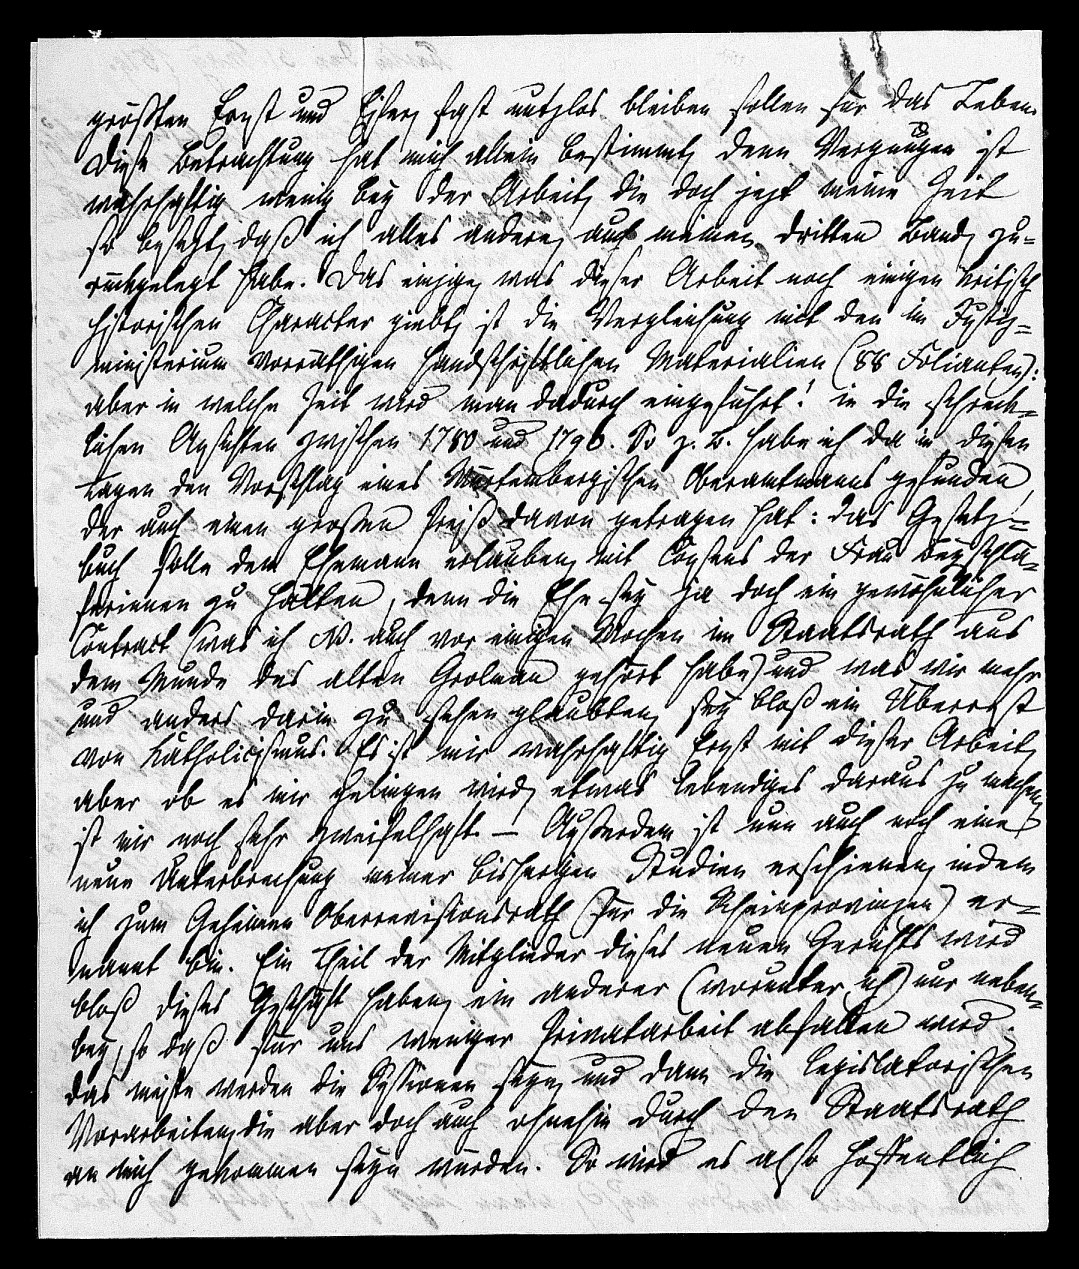 größten Ernst und Eifer, fast nutzlos bleiben sollen für das Leben.
Diese Betrachtung hat mich allein bestimmt, denn Vergnügen ist
wahrhaftig wenig bey der Arbeit, die doch jezt meine Zeit
so besezt, daß ich alles andere, auch meinen dritten Band, zu-
rückgelegt habe. Das einzige, was dieser Arbeit noch einigen kritisch
historischen Character giebt, ist die Vergleichung mit den im Justiz-
ministerium vorräthigen handschriftlichen Materialien (88 Folianten):
aber in welche Zeit wird man dadurch eingeführt! in die schreck-
lichen Ansichten zwischen 1780 und 1790. So z. B. habe ich da in diesen
Tagen den Vorschlag eines Würtembergischen Oberamtmanns gefunden,
der auch einen großen Preiß davon getragen hat: das Gesetz-
buch solle dem Ehemann erlauben, mit Consens der Frau Beyschlä-
ferinnen zu halten, denn die Ehe sey ja doch ein gewöhnlicher
Contract (was ich NB. auch vor einigen Wochen im Staatsrath aus
dem Munde des alten Grolman gehört habe) und was wir mehr
und anders darin zu sehen glaubten, sey bloß ein Überrest
von Katholicismus. Es ist mir wahrhaftig Ernst mit dieser Arbeit,
aber ob es mir gelingen wird, etwas lebendiges daraus zu machen,
ist mir noch sehr zweifelhaft. — Außerdem ist nun auch noch eine
neue Unterbrechung meiner bisherigen Studien erschienen, indem
ich zum Geheimen Oberrevisionsrath (für die Rheinprovinzen) er-
nannt bin. Ein Theil der Mitglieder dieses neuen Gerichts wird
bloß dieses Geschäft haben, ein anderer (worunter ich) nur neben-
bey, so daß für uns weniger Privatarbeit abfallen wird.
das meiste werden die Sessionen seyn, und dann die legislatorischen
Vorarbeiten, die aber doch auch ohnehin durch den Staatsrath
an mich gekommen seyn würden. So wird es also hoffentlich